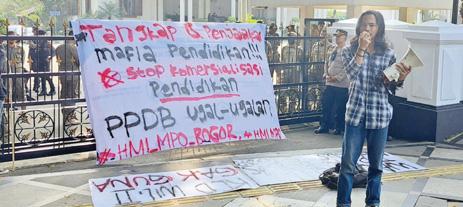 Tangkap & Penjarakan
mafia Pendidikan!!!
Stop komersialisasi
Pendidikan
PPDB ugal-ugalan
#HMI_MPO_BOGOR, #HMI MPO
GUNA